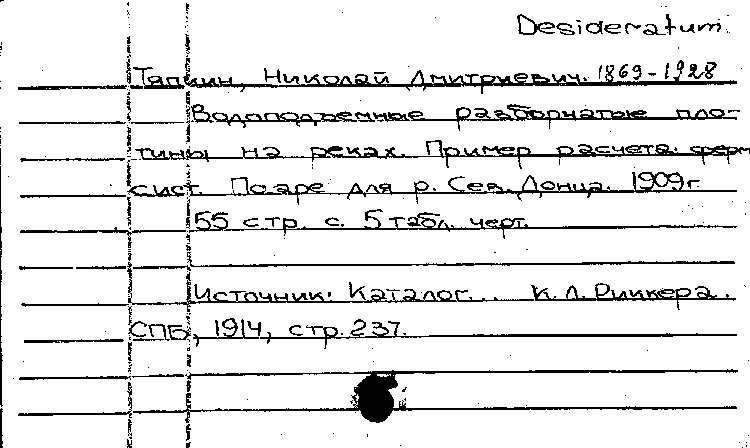 Desideratum.
Тяпкин, Николай Дмитриевич. 1869-1928
Водоподъемные разборчатые пло-
тины на реках. Пример расчета ферм
сист. Поаре для р. Сев. Донца. 1909г
55 стр. с. 5 табл. черт.
Источник: Каталог... К.Л.Риккера.
СПБ, 1914, стр. 237.